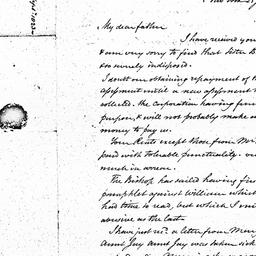 My dear father
I have received you
& am very sorry to find that Sister B
so severely indisposed.
I doubt our obtaining repayment of t
assessment until a new assessment
collected. the corporation having fun
purpose, & will not probably make a
money to pay us.
Your Rents except those from Mor
paid with tolerable punctuality.
much in arrear.
The Bishop has sailed having fir
pamphlet against William which
had time to read, but which I
abusive as the last.
I have just recd. a letter from Mer
Aunt Guy. Aunt Guy was taken sick